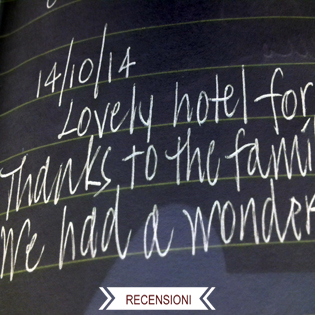 14/10/14
Lovely hotel for
Thanks to the fami
We had a wonder
RECENSIONI